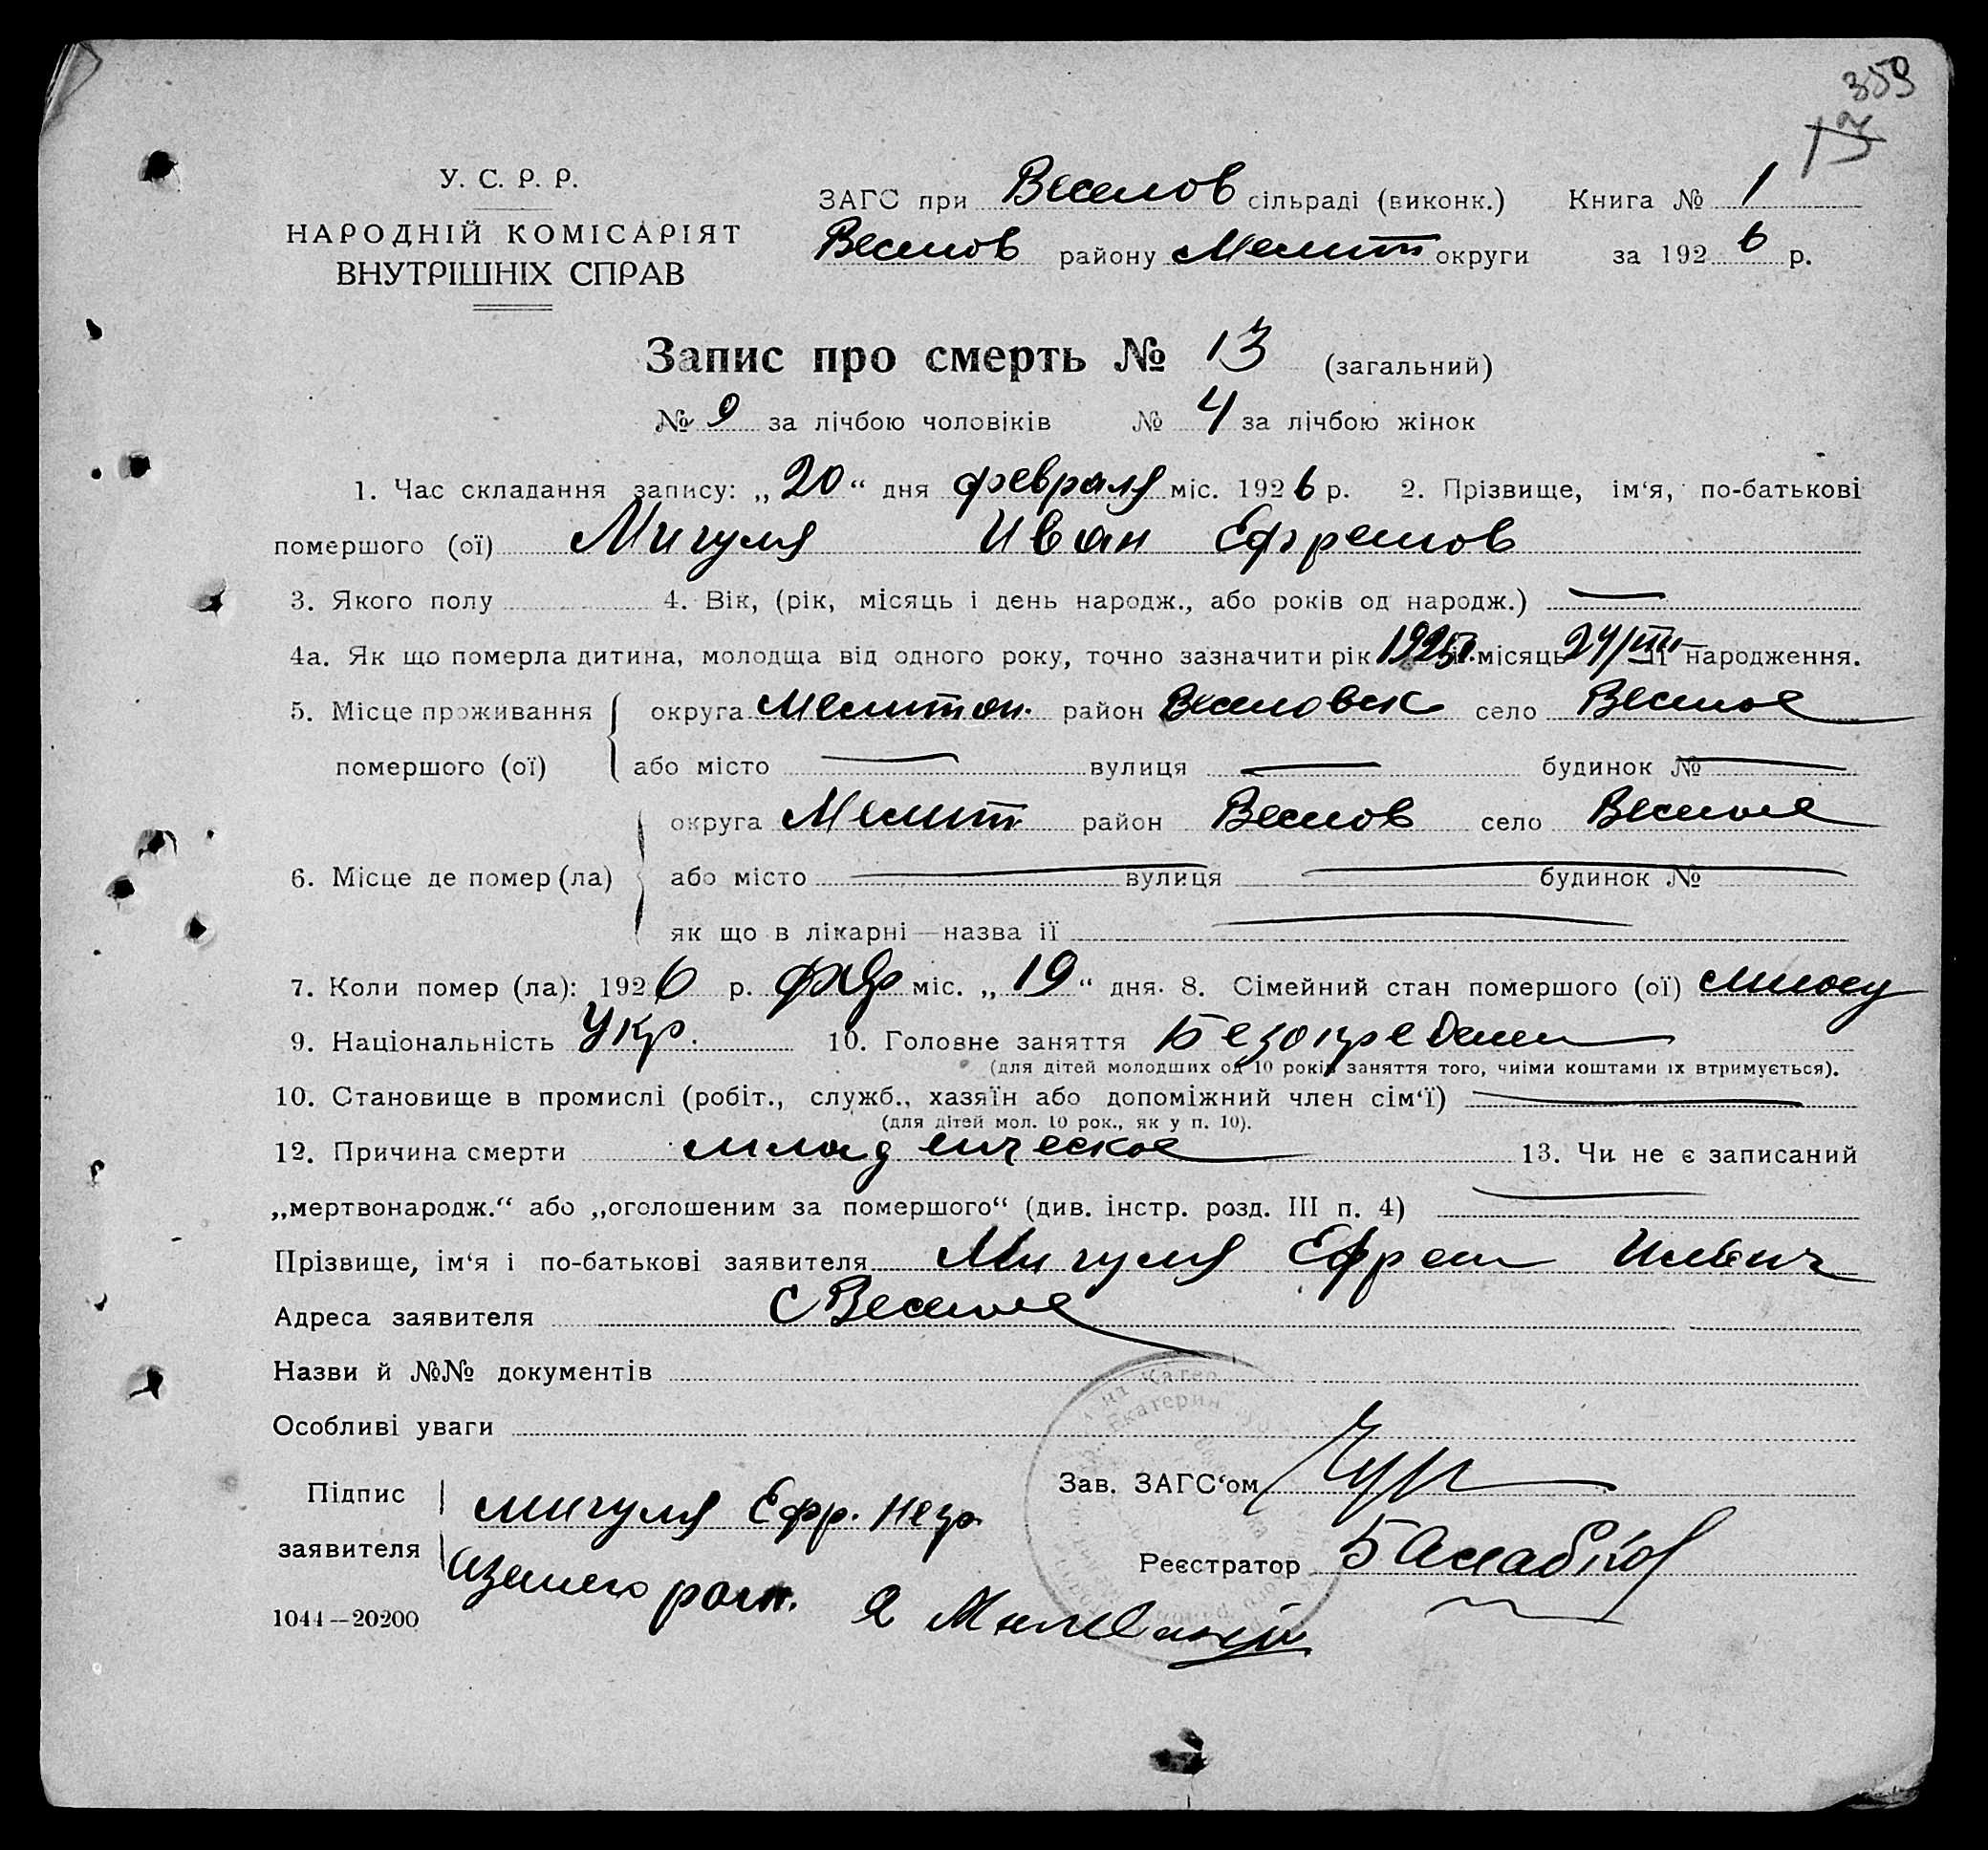 359
13
У. С. Р. Р.
НАРОДНІЙ КОМІСАРІЯТ
ВНУТРІШНІХ СПРАВ
ЗАГС при Веселов сільраді (виконк.) Книга № 1
Веселов району Мелит округи за 1926 р.
Запис про смерть № 13 (загальний)
№ 9 за лічбою чоловіків № 4 за лічбою жінок
1. Час складання запису: „20“ дня февраля міс. 1926 р. 2. Прізвище, ім‘я, по-батькові
помершого (ої) Мигуля Иван Ефремов
3. Якого полу 4. Вік, (рік, місяць і день народж., або років од народж.) —
4а. Як що померла дитина, молодща від одного року, точно зазначити рік 1925 місяць 24/VIII її народження.
5. Місце проживання округа Мелитоп. район Веселовск село Веселое
помершого (ої) або місто — вулиця — будинок № —
округа Мелит район Веселов село Веселое
6. Місце де помер (ла) або місто — вулиця — будинок №
як що в лікарні—назва її —
7. Коли помер (ла): 1926 р. февр міс. „19“ дня. 8. Сімейний стан помершого (ої)
9. Національність Укр. 10. Головне заняття
(для дітей молодших од 10 років заняття того, чиїми коштами їх втримується).
10. Становище в промислі (робіт., служб., хазяїн або допоміжний член сім‘ї) —
(для дітей мол. 10 рок., як у п. 10).
12. Причина смерти младенческое 13. Чи не є записаний
„мертвонародж.“ або „оголошеним за помершого“ (див. інстр. розд. III п. 4) —
Прізвище, ім‘я і по-батькові заявителя Мигуля Ефрем
Адреса заявителя с Веселое
Назви й №№ документів
Особливі уваги
Підпис мигуля Ефр. негр
заявителя
Зав. ЗАГС‘ом
Реєстратор
1044—20200